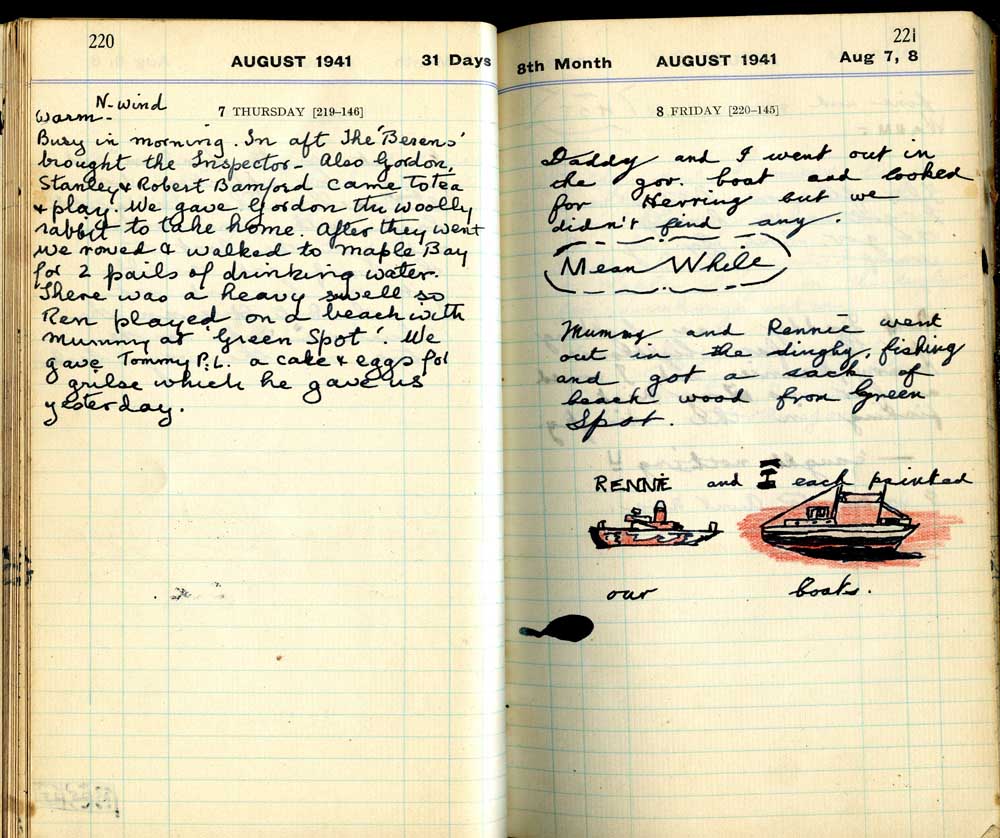 220
AUGUST 1941 31 Days
N-wind
warm-
7 THURSDAY [219-146]
Busy in morning. In aft The 'Beseno'
brought the Inspector- Also Gordon,
Stanley & Robert Bamford came to tea
& play. We gave Gordon the woolly
rabbit to take home. After they went
we rowed & walked to Maple Bay
for 2 pails of drinking water.
There was a heavy swell so
Ren played on a beach with
mummy at 'Green Spot'. We
gave Tommy P.L. a cake & eggs for
grilse which he gave us
yesterday.
221
8th Month AUGUST 1941 Aug 7, 8
8 FRIDAY [220-145]
Daddy and I went out in
the gov. boat and looked
for Herring but we
didn't find any.
Mean While
Mummy and Rennie went
out in the dinghy, fishing
and got a sack of
beach wood from Green
Spot.
RENNIE and I each painted
our boats.